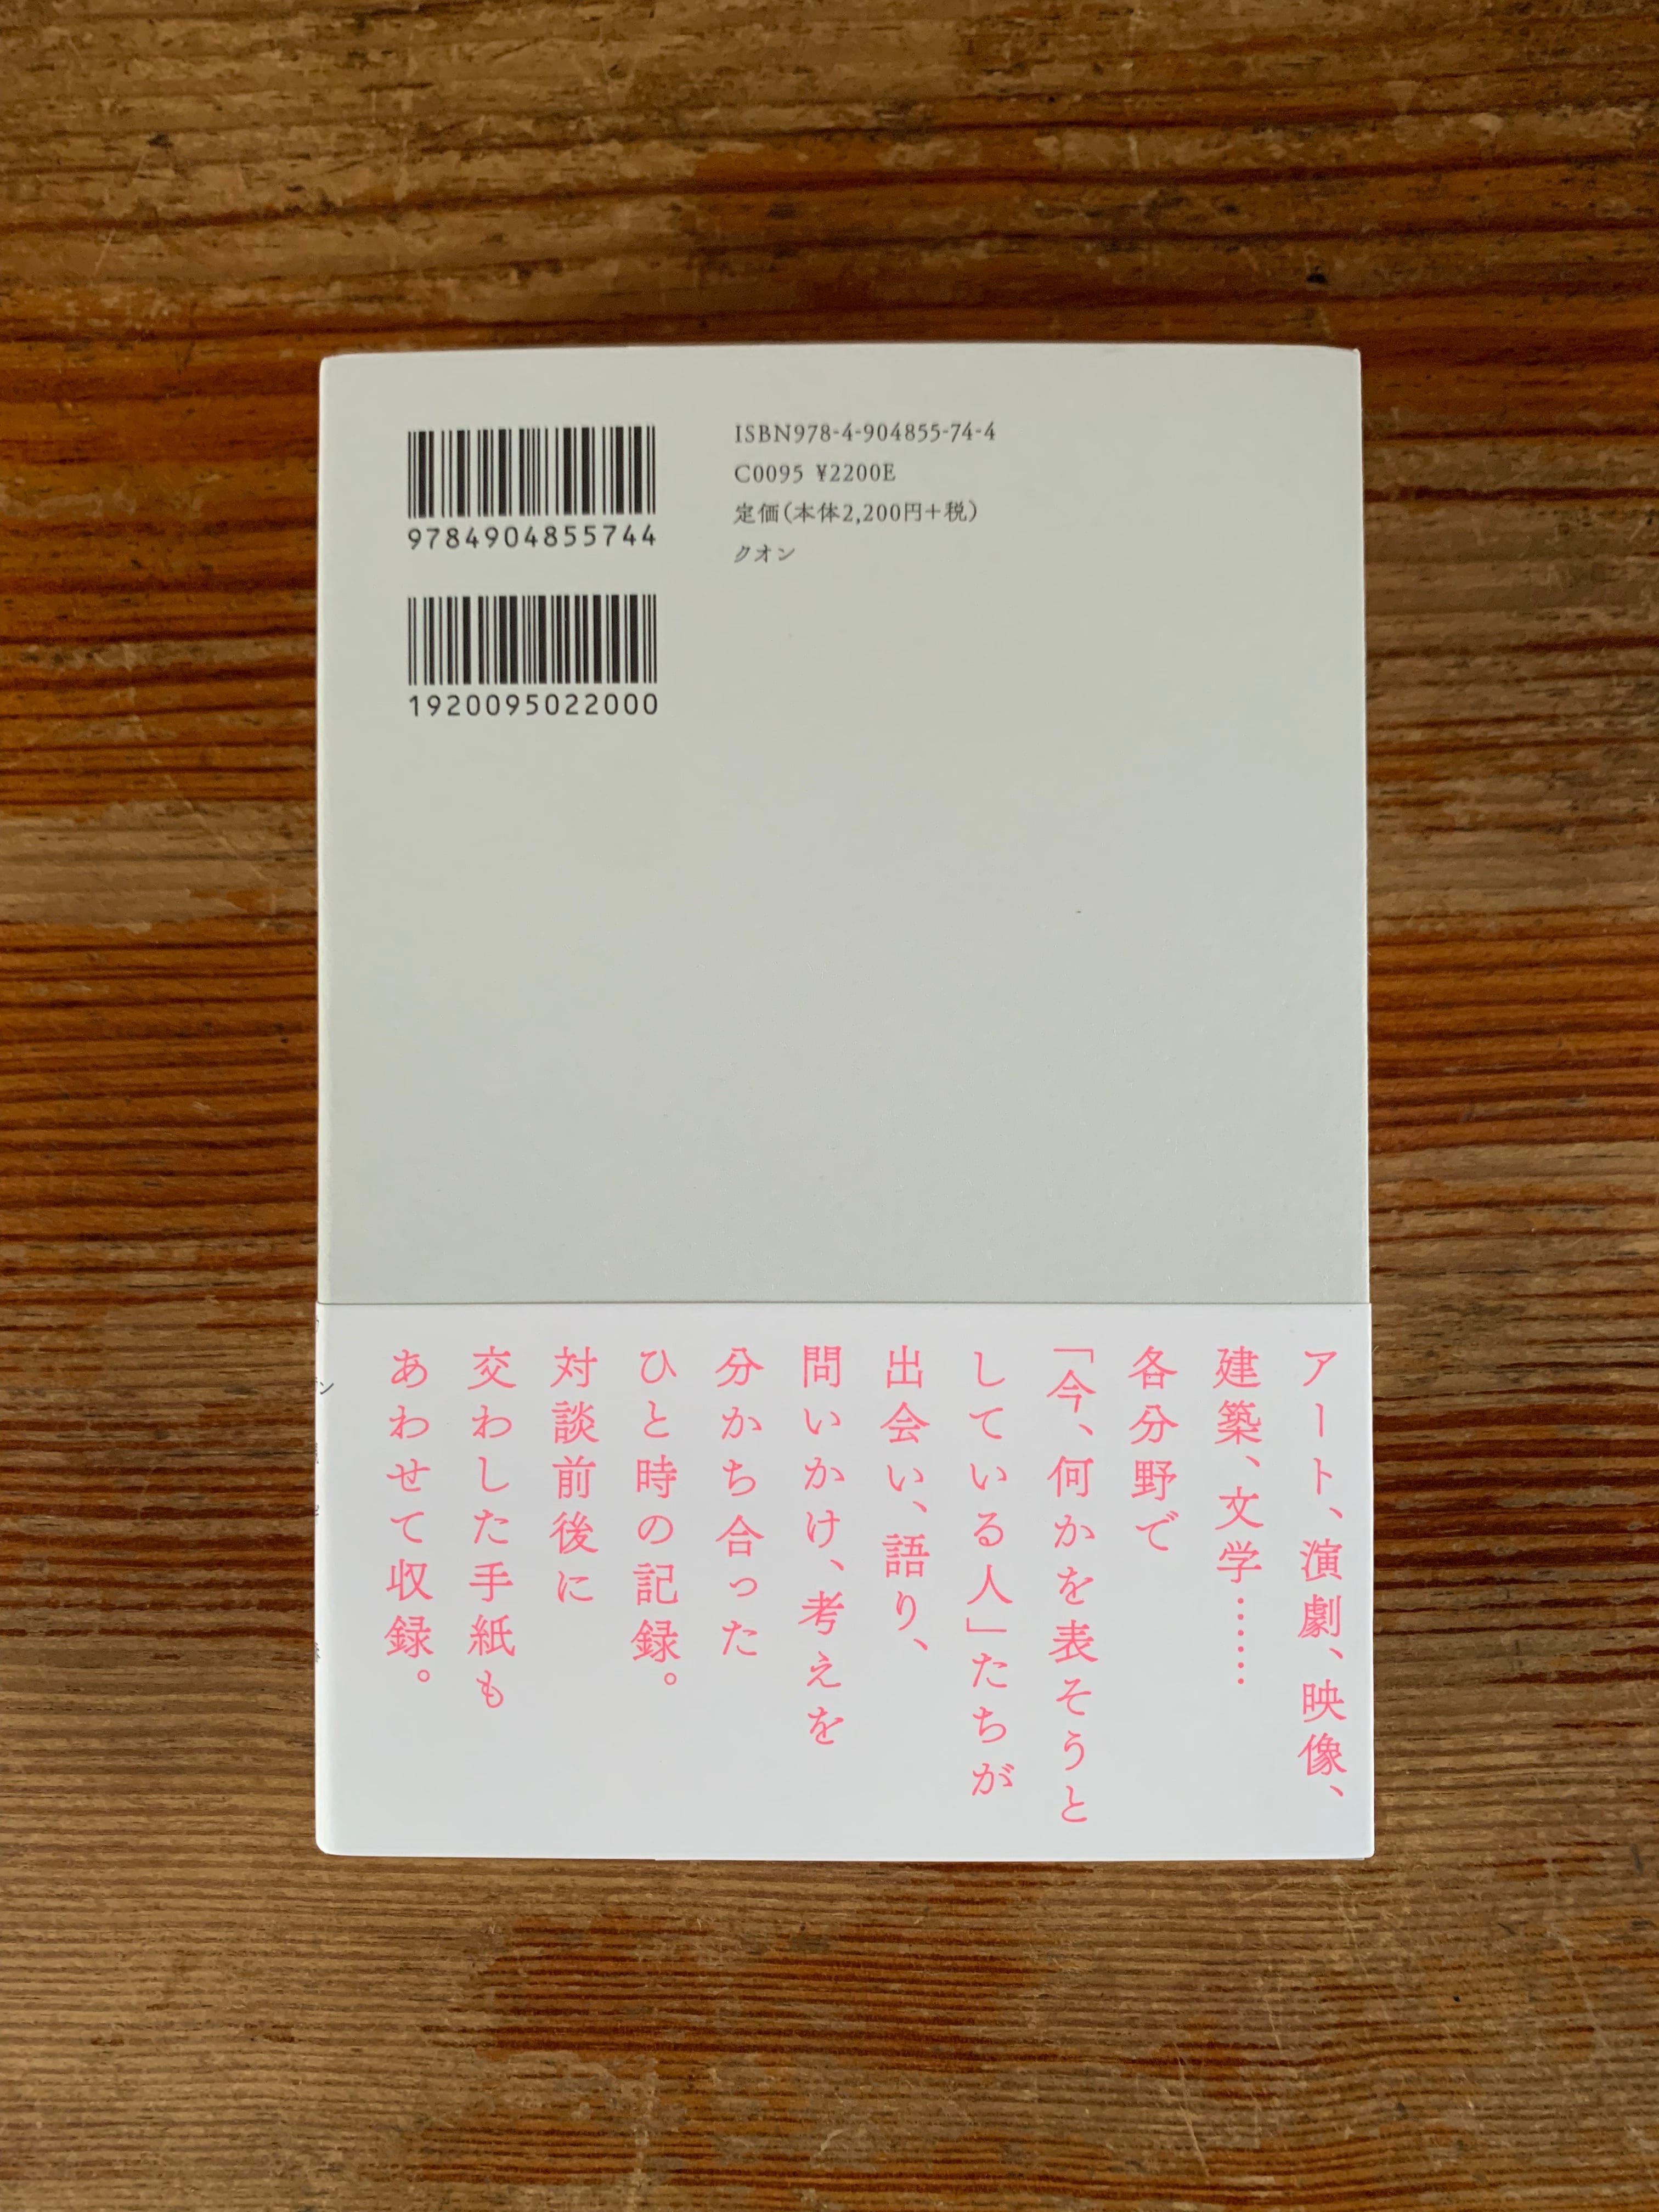 9784904855744
1920095022000
ISBN978-4-904855-74-4
C0095 ¥2200E
定価(本体2,200円+税)
クオン
アート、演劇、映像、
建築、文学……
各分野で
「今、何かを表そうと
している人」たちが
出会い、語り、
問いかけ、考えを
分かち合った
ひと時の記録。
対談前後に
交わした手紙も
あわせて収録。